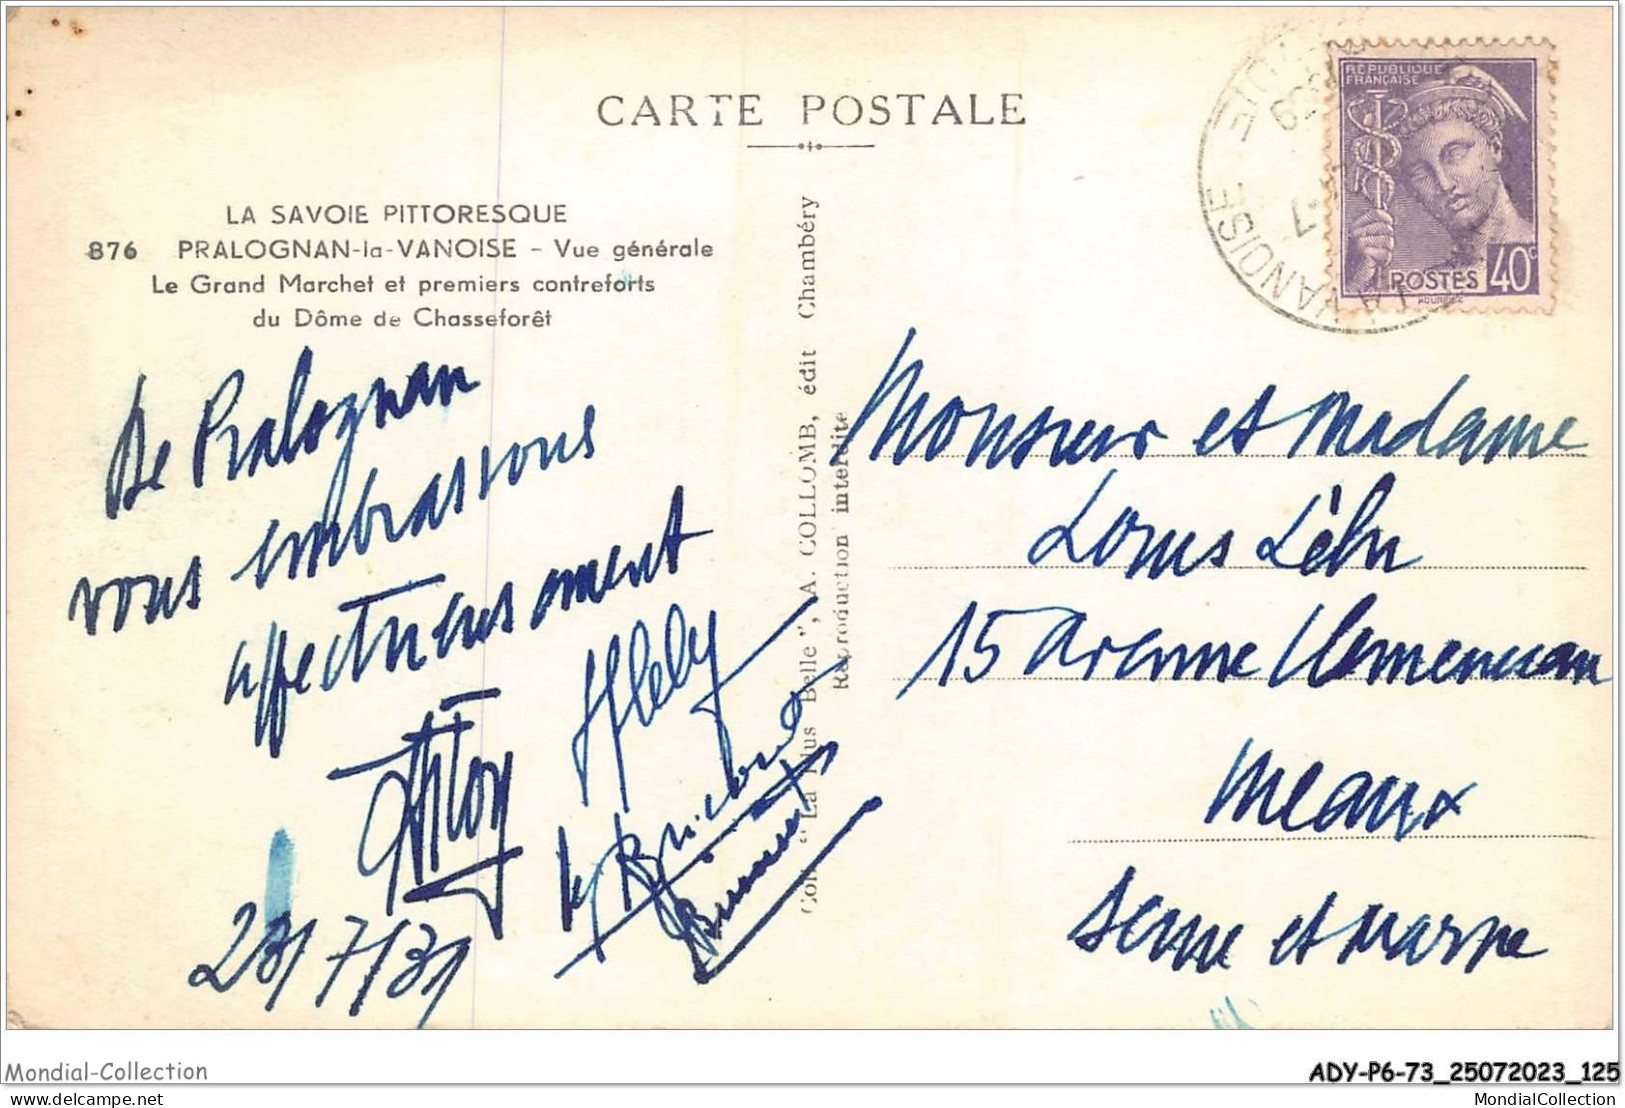 CARTE POSTALE
LA SAVOIE PITTORESQUE
876 PRALOGNAN-la-VANOISE - Vue générale
Le Grand Marchet et premiers contreforts
du Dôme de Chasseforêt
De Pralognan
vous embrassons
affectueusement
Hely
23/7/39
"La plus Belle", A. COLLOMB, édit Chambéry
Reproduction interdite
LA VANOISE
RÉPUBLIQUE
FRANÇAISE
POSTES 40c
Monsieur et Madame
Louis
15 Avenue Clemenceau
Meaux
Seine et Marne
Mondial-Collection
ADY-P6-73_25072023_125
delcampe.net
MondialCollection